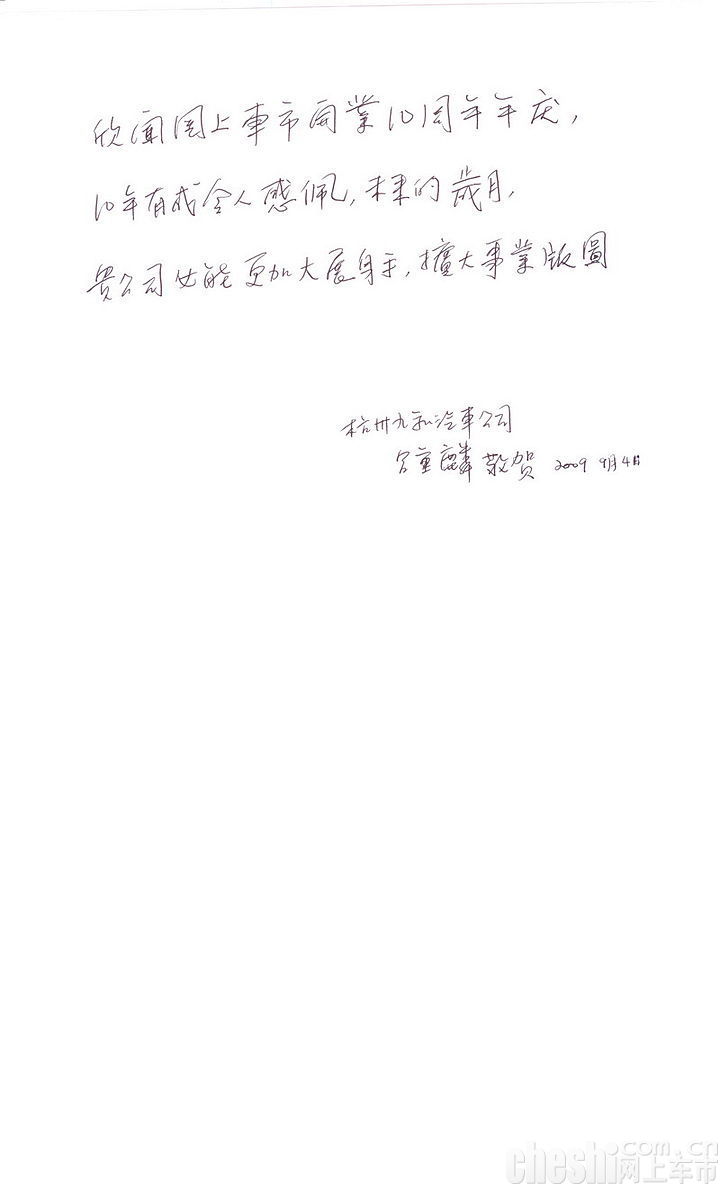 欣闻网上車市開業10周年年庆,
10年有成令人感佩,未来的歲月,
貴公司必能更加大展身手,擴大事業版圖
杭州九和汽車公司
重麟敬贺 2009 9月4日
cheshi.com.cn
网上车市